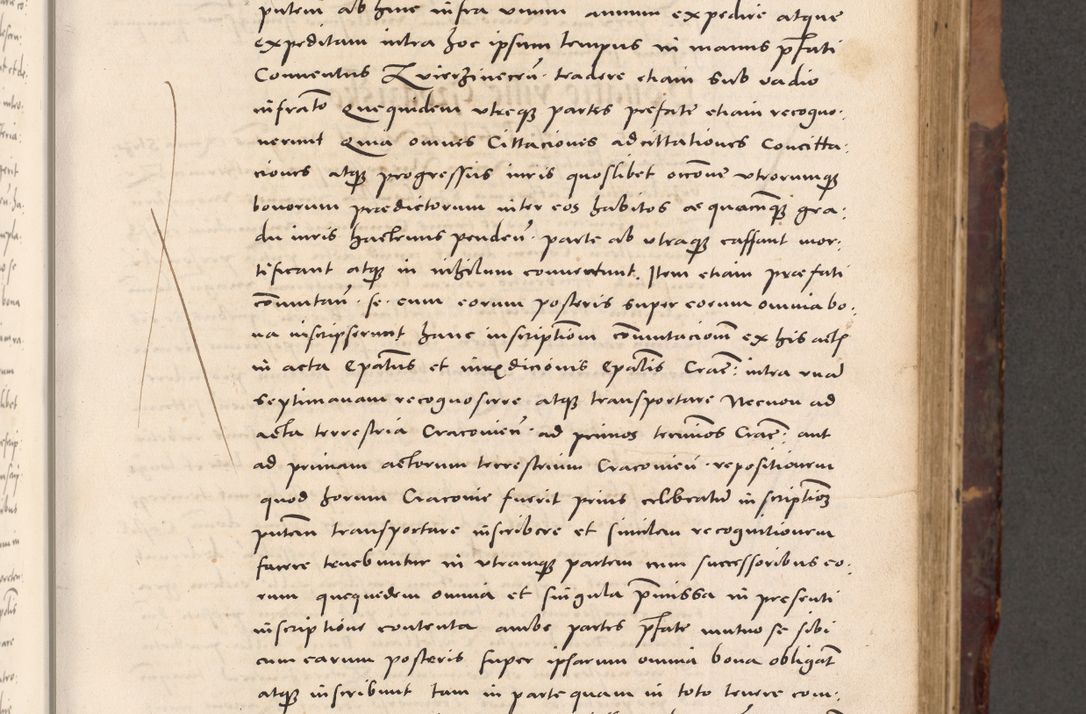 putem ab hinc infra unum annum expedire atque
expeditam intra hoc ipsum tempus in manus p̃fati
Conventus Zvierzinecen̄. tradere etiam sub vadio
infrato Quequidem utreqꝫ partes prefate etiam recogno:
verunt Quia omnes Cittaciones adcittationes Concitta:
ciones atqꝫ progressus iuris quoslibet occōne utrorumqꝫ
bonorum praedictorum inter eos habitos ac quocunqꝫ gra:
du iuris hactenus penden̄. parte ab utraqꝫ cassant mor:
tificant atqꝫ in nihilum convertunt. Item etiam praefati
cōmutan̄. se. cum eorum posteris super eorum omnia bo:
na inscripserunt hanc inscriptiōem cōmutacionē ex his actꝭ
in acta Ep̄atus et iurisdicionis Ep̄alis Crac̄: intra unā
septimanam recognoscere atqꝫ transportare Necnon ad
acta terrestria Cracovien̄. ad primos terminos Crac̄: aut
ad primam actorum terrestrium Cracovien̄. repositionem
quod horum Cracovie fuerit prius celebratū inscriptiōꝫ
p̄ntem transportare inscribere et similem recognitionem
facere tenebuntur in utramqꝫ partem cum successoribus eo:
rum quequedem omnia et singula p̄missa in presenti
inscriptione contenta ambe partes p̃fate mutuo se sibi
cum earum posteris super ipsarum omnia bona obligāt
atqꝫ inscribunt tam in parte quam in toto tenere com: